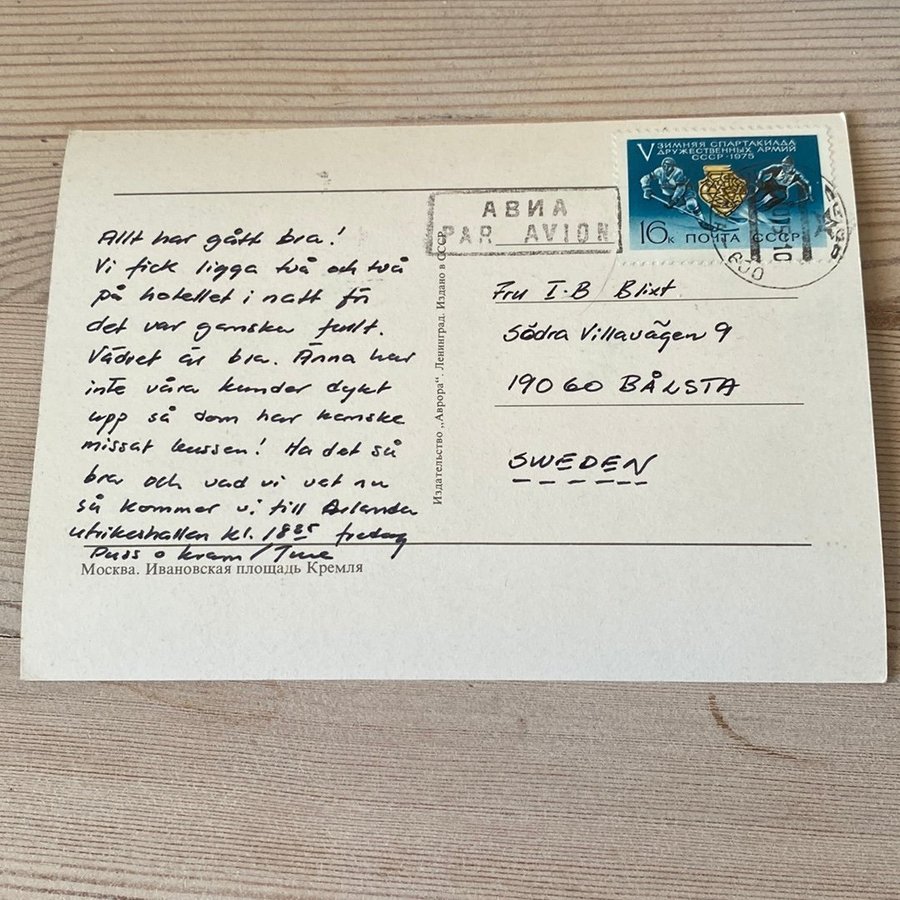 V ЗИМНЯЯ СПАРТАКИАДА
ДРУЖЕСТВЕННЫХ АРМИЙ
СССР · 1975
16к ПОЧТА СССР
АВИА
PAR AVION
Allt har gått bra!
Vi fick ligga två och två
på hotellet i natt för
det var ganska fullt.
Vädret är bra. Änna har
inte våra kunder dykt
upp så dom har kanske
missat bussen! Ha det så
bra och vad vi vet nu
så kommer vi till Arlanda
utrikeshallen kl. 18 fredag
Puss o kram / Ture
Москва. Ивановская площадь Кремля
Издательство „Аврора“. Ленинград. Издано в СССР
Fru I-B Blixt
Södra Villavägen 9
190 60 BÅLSTA
SWEDEN